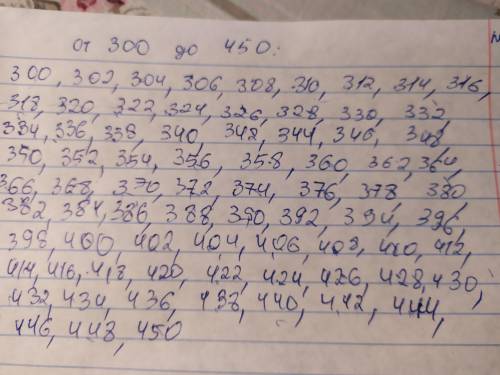 от 300 до 450:
300, 302, 304, 306, 308, 310, 312, 314, 316,
318, 320, 322, 324, 326, 328, 330, 332,
334, 336, 338, 340, 348, 344, 346, 348,
350, 352, 354, 356, 358, 360, 362, 364,
366, 368, 370, 372, 374, 376, 378, 380
382, 384, 386, 388, 390, 392, 394, 396,
398, 400, 402, 404, 406, 408, 410, 412,
414, 416, 418, 420, 422, 424, 426, 428, 430,
432, 434, 436, 438, 440, 442, 444,
446, 448, 450